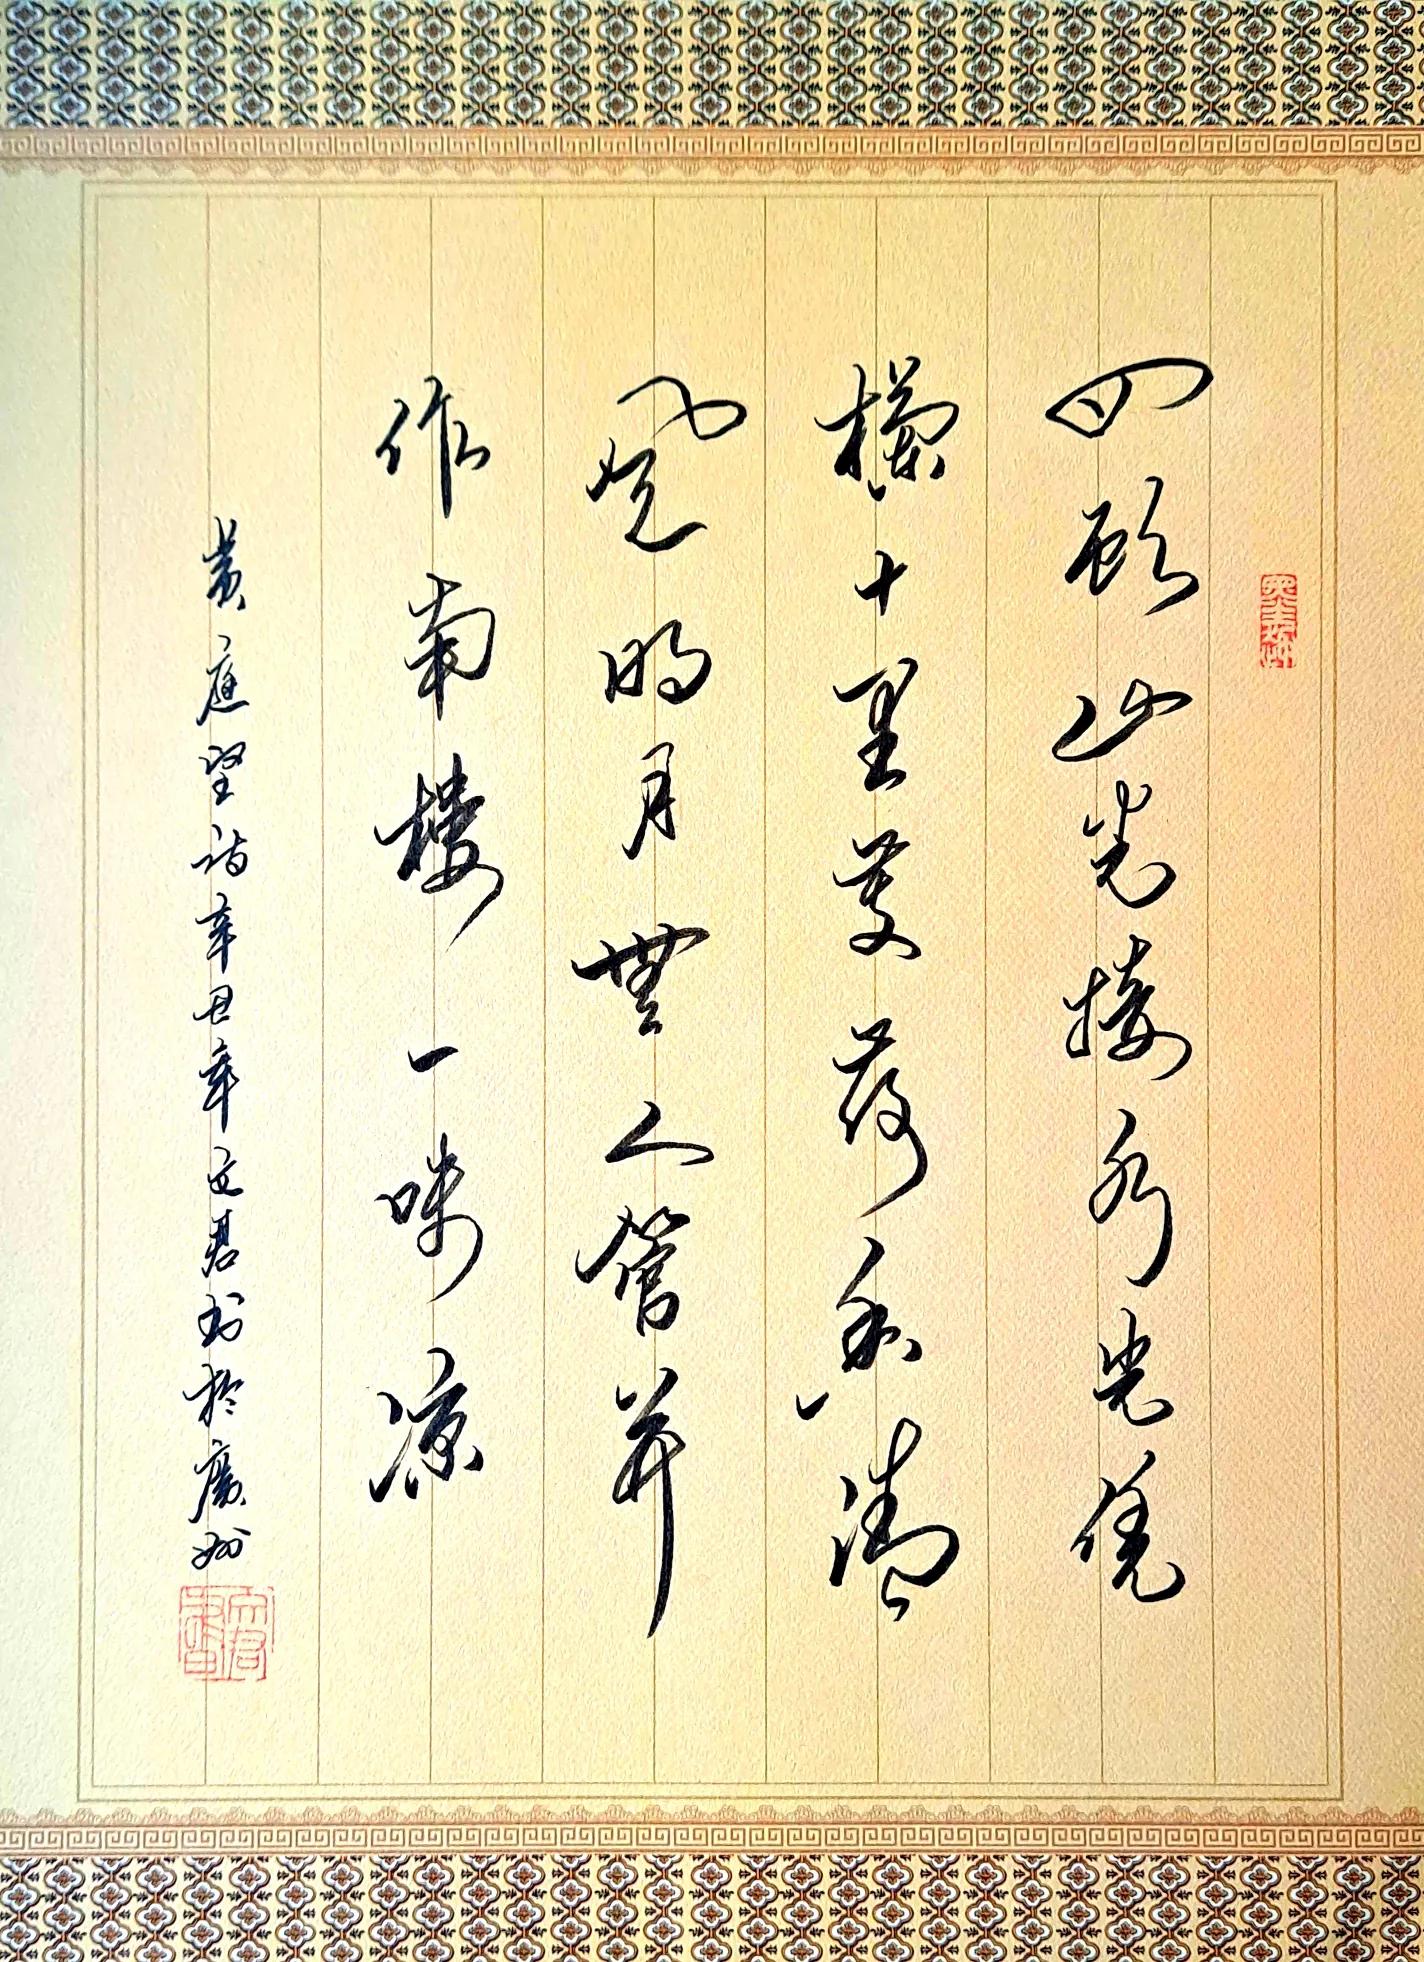 四顾山光接水光凭
欄十里芰荷香清
風明月無人管并
作南樓一味凉
黄庭坚诗辛丑年文君书於廣州